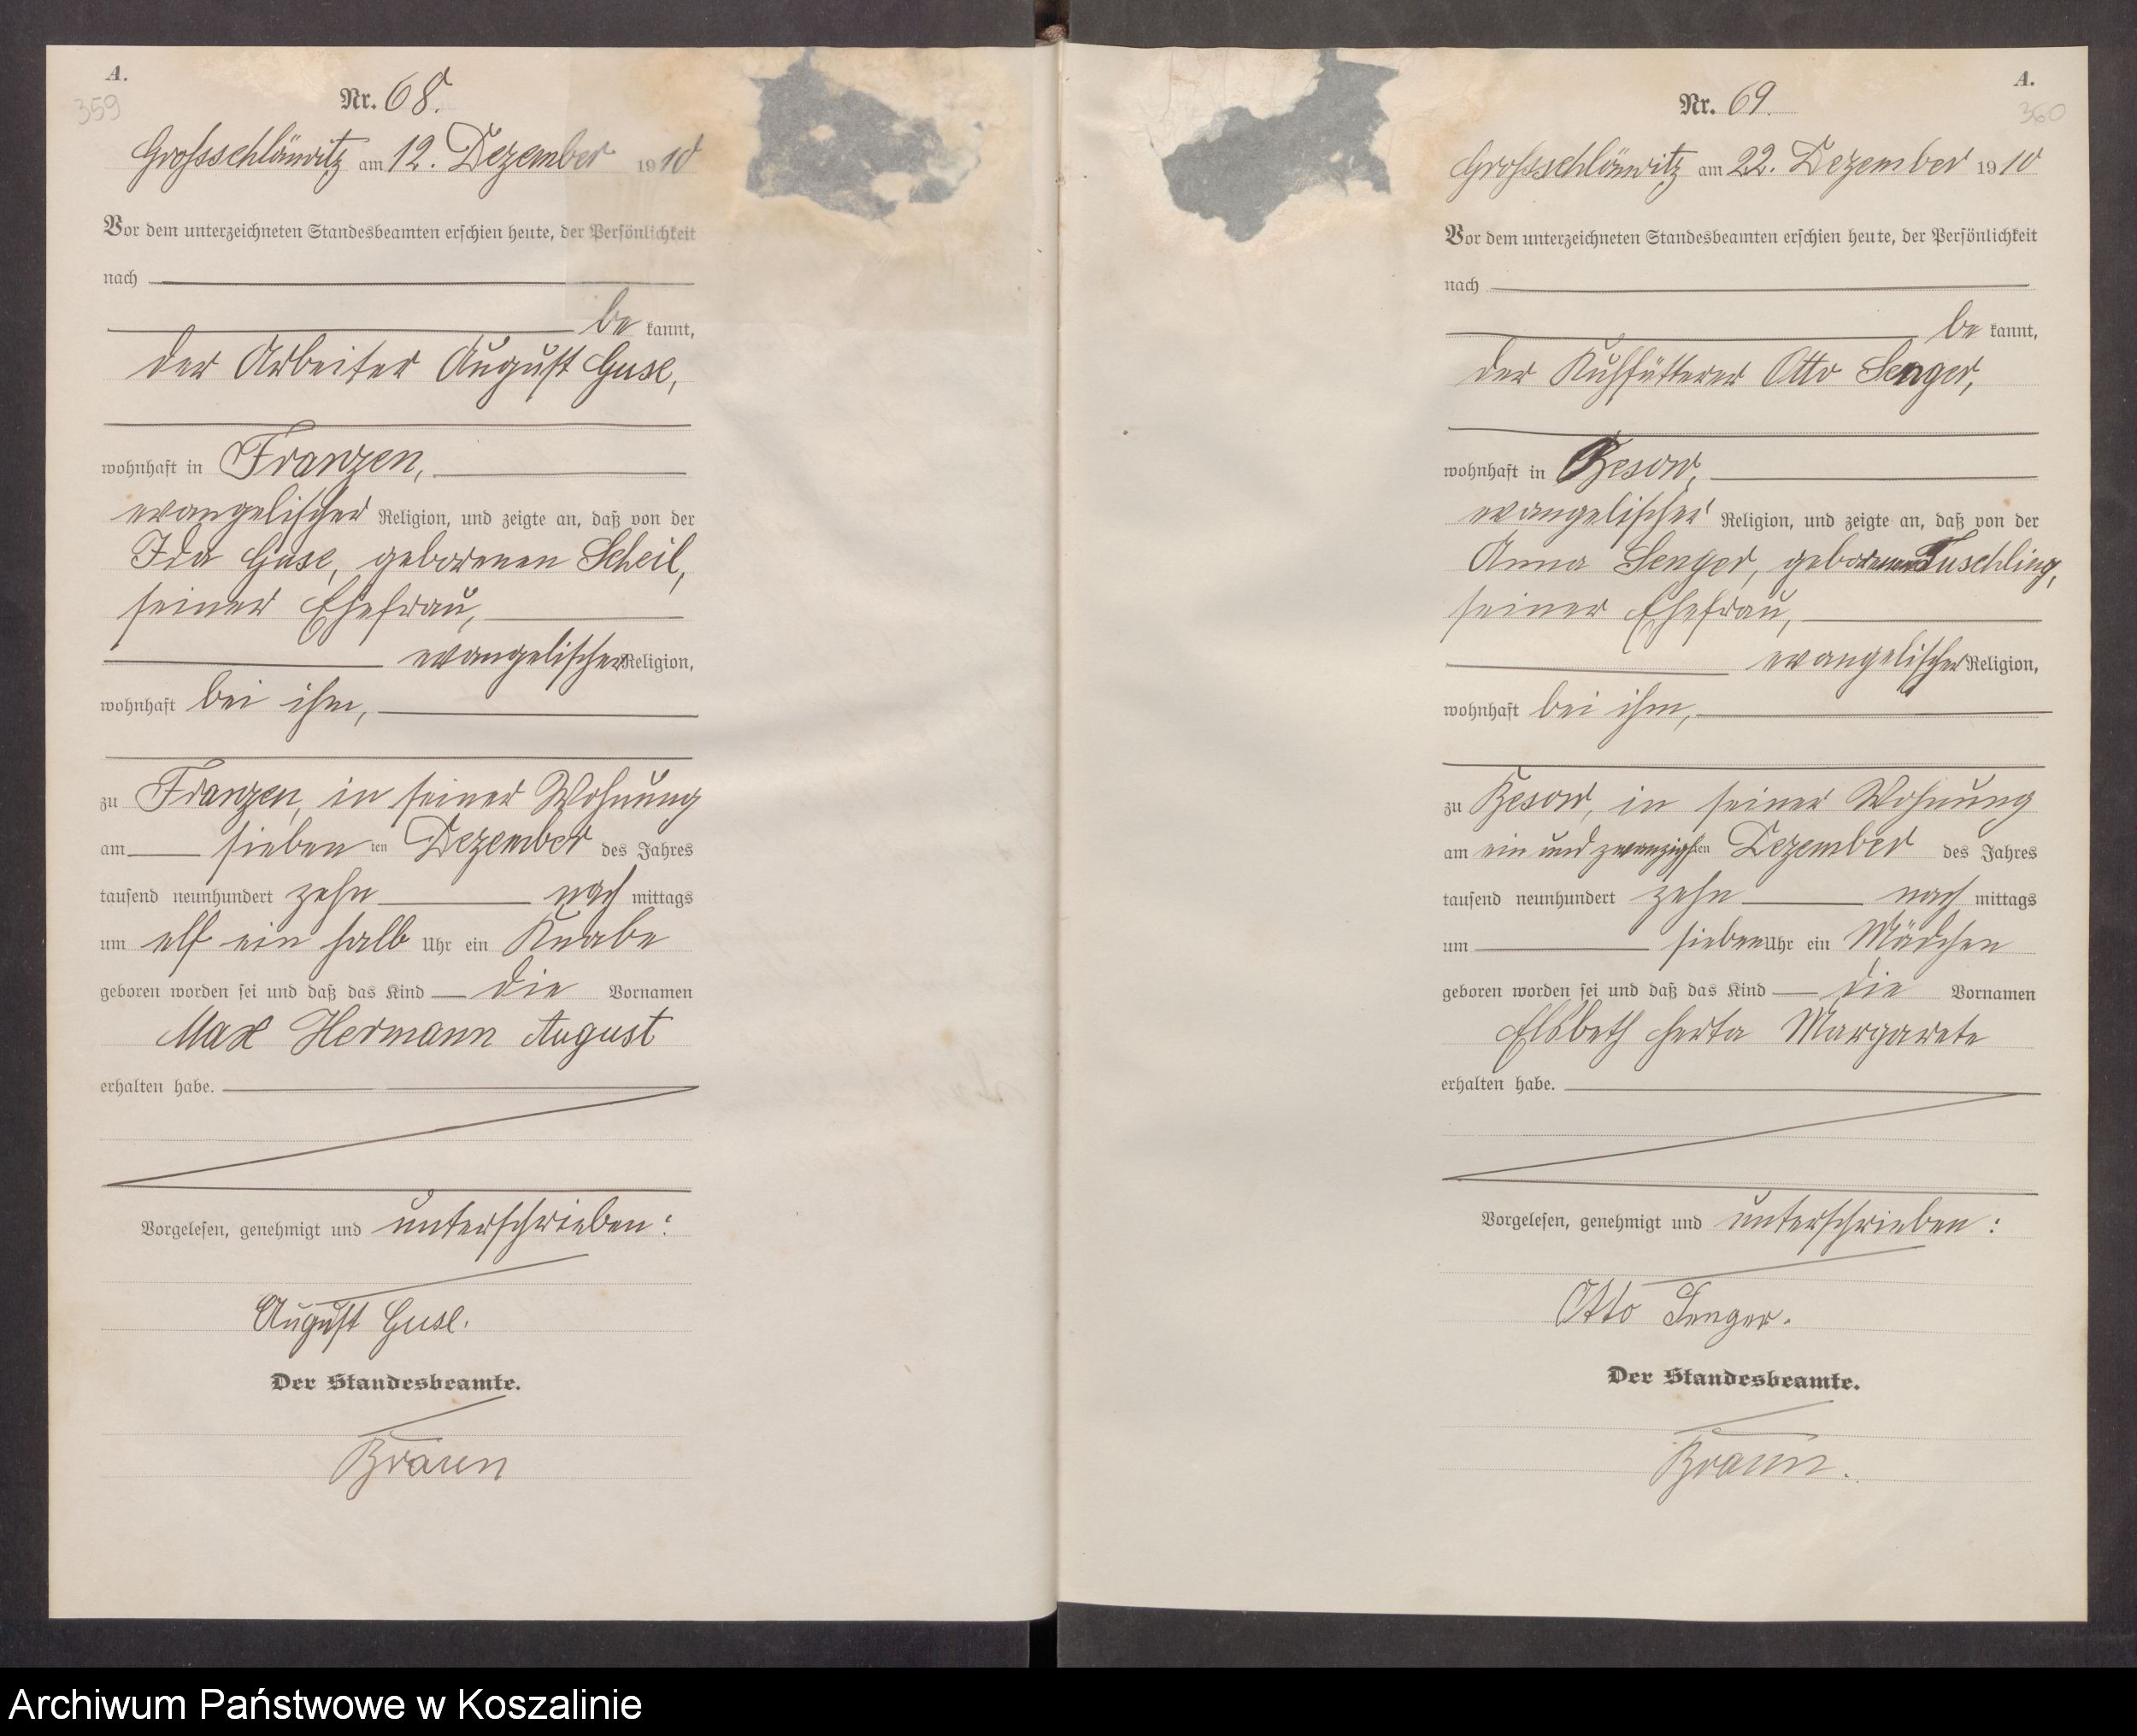 A.
359
Nr. 68.
Grossschlönwitz am 12. Dezember 1910
Vor dem unterzeichneten Standesbeamten erschien heute, der Persönlichkeit
nach
be kannt,
der Arbeiter August Guse,
wohnhaft in Franzen,
evangelischer Religion, und zeigte an, daß von der
Ida Guse, geborenen Scheil,
seiner Ehefrau,
evangelischer Religion,
wohnhaft bei ihm,
zu Franzen, in seiner Wohnung
am sieben ten Dezember des Jahres
tausend neunhundert zehn nach mittags
um elf ein halb Uhr ein Knabe
geboren worden sei und daß das Kind die Vornamen
Max Hermann August
erhalten habe.
Vorgelesen, genehmigt und unterschrieben:
August Guse.
Der Standesbeamte.
Braun
A.
360
Nr. 69.
Grossschlönwitz am 22. Dezember 1910
Vor dem unterzeichneten Standesbeamten erschien heute, der Persönlichkeit
nach
be kannt,
der Kuhfütterer Otto Senger,
wohnhaft in Besow,
evangelischer Religion, und zeigte an, daß von der
Anna Senger, geborenen Tuschling,
seiner Ehefrau,
evangelischer Religion,
wohnhaft bei ihm,
zu Besow, in seiner Wohnung
am ein und zwanzigsten Dezember des Jahres
tausend neunhundert zehn nach mittags
um sieben Uhr ein Mädchen
geboren worden sei und daß das Kind die Vornamen
Elsbeth Herta Margarete
erhalten habe.
Vorgelesen, genehmigt und unterschrieben:
Otto Senger.
Der Standesbeamte.
Braun.
Archiwum Państwowe w Koszalinie